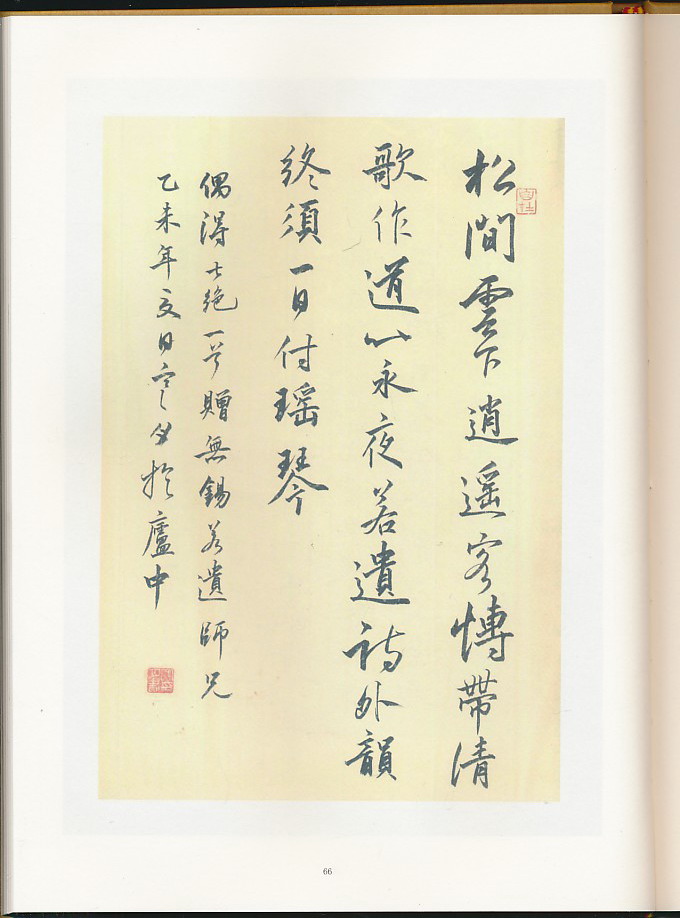 松間雲下逍遥客愽帶清
歌作道心永夜若遺詩外韻
終須一日付瑶琴
偶得七絶一首贈無錫若遺師兄
乙未年夏日於廬中
66